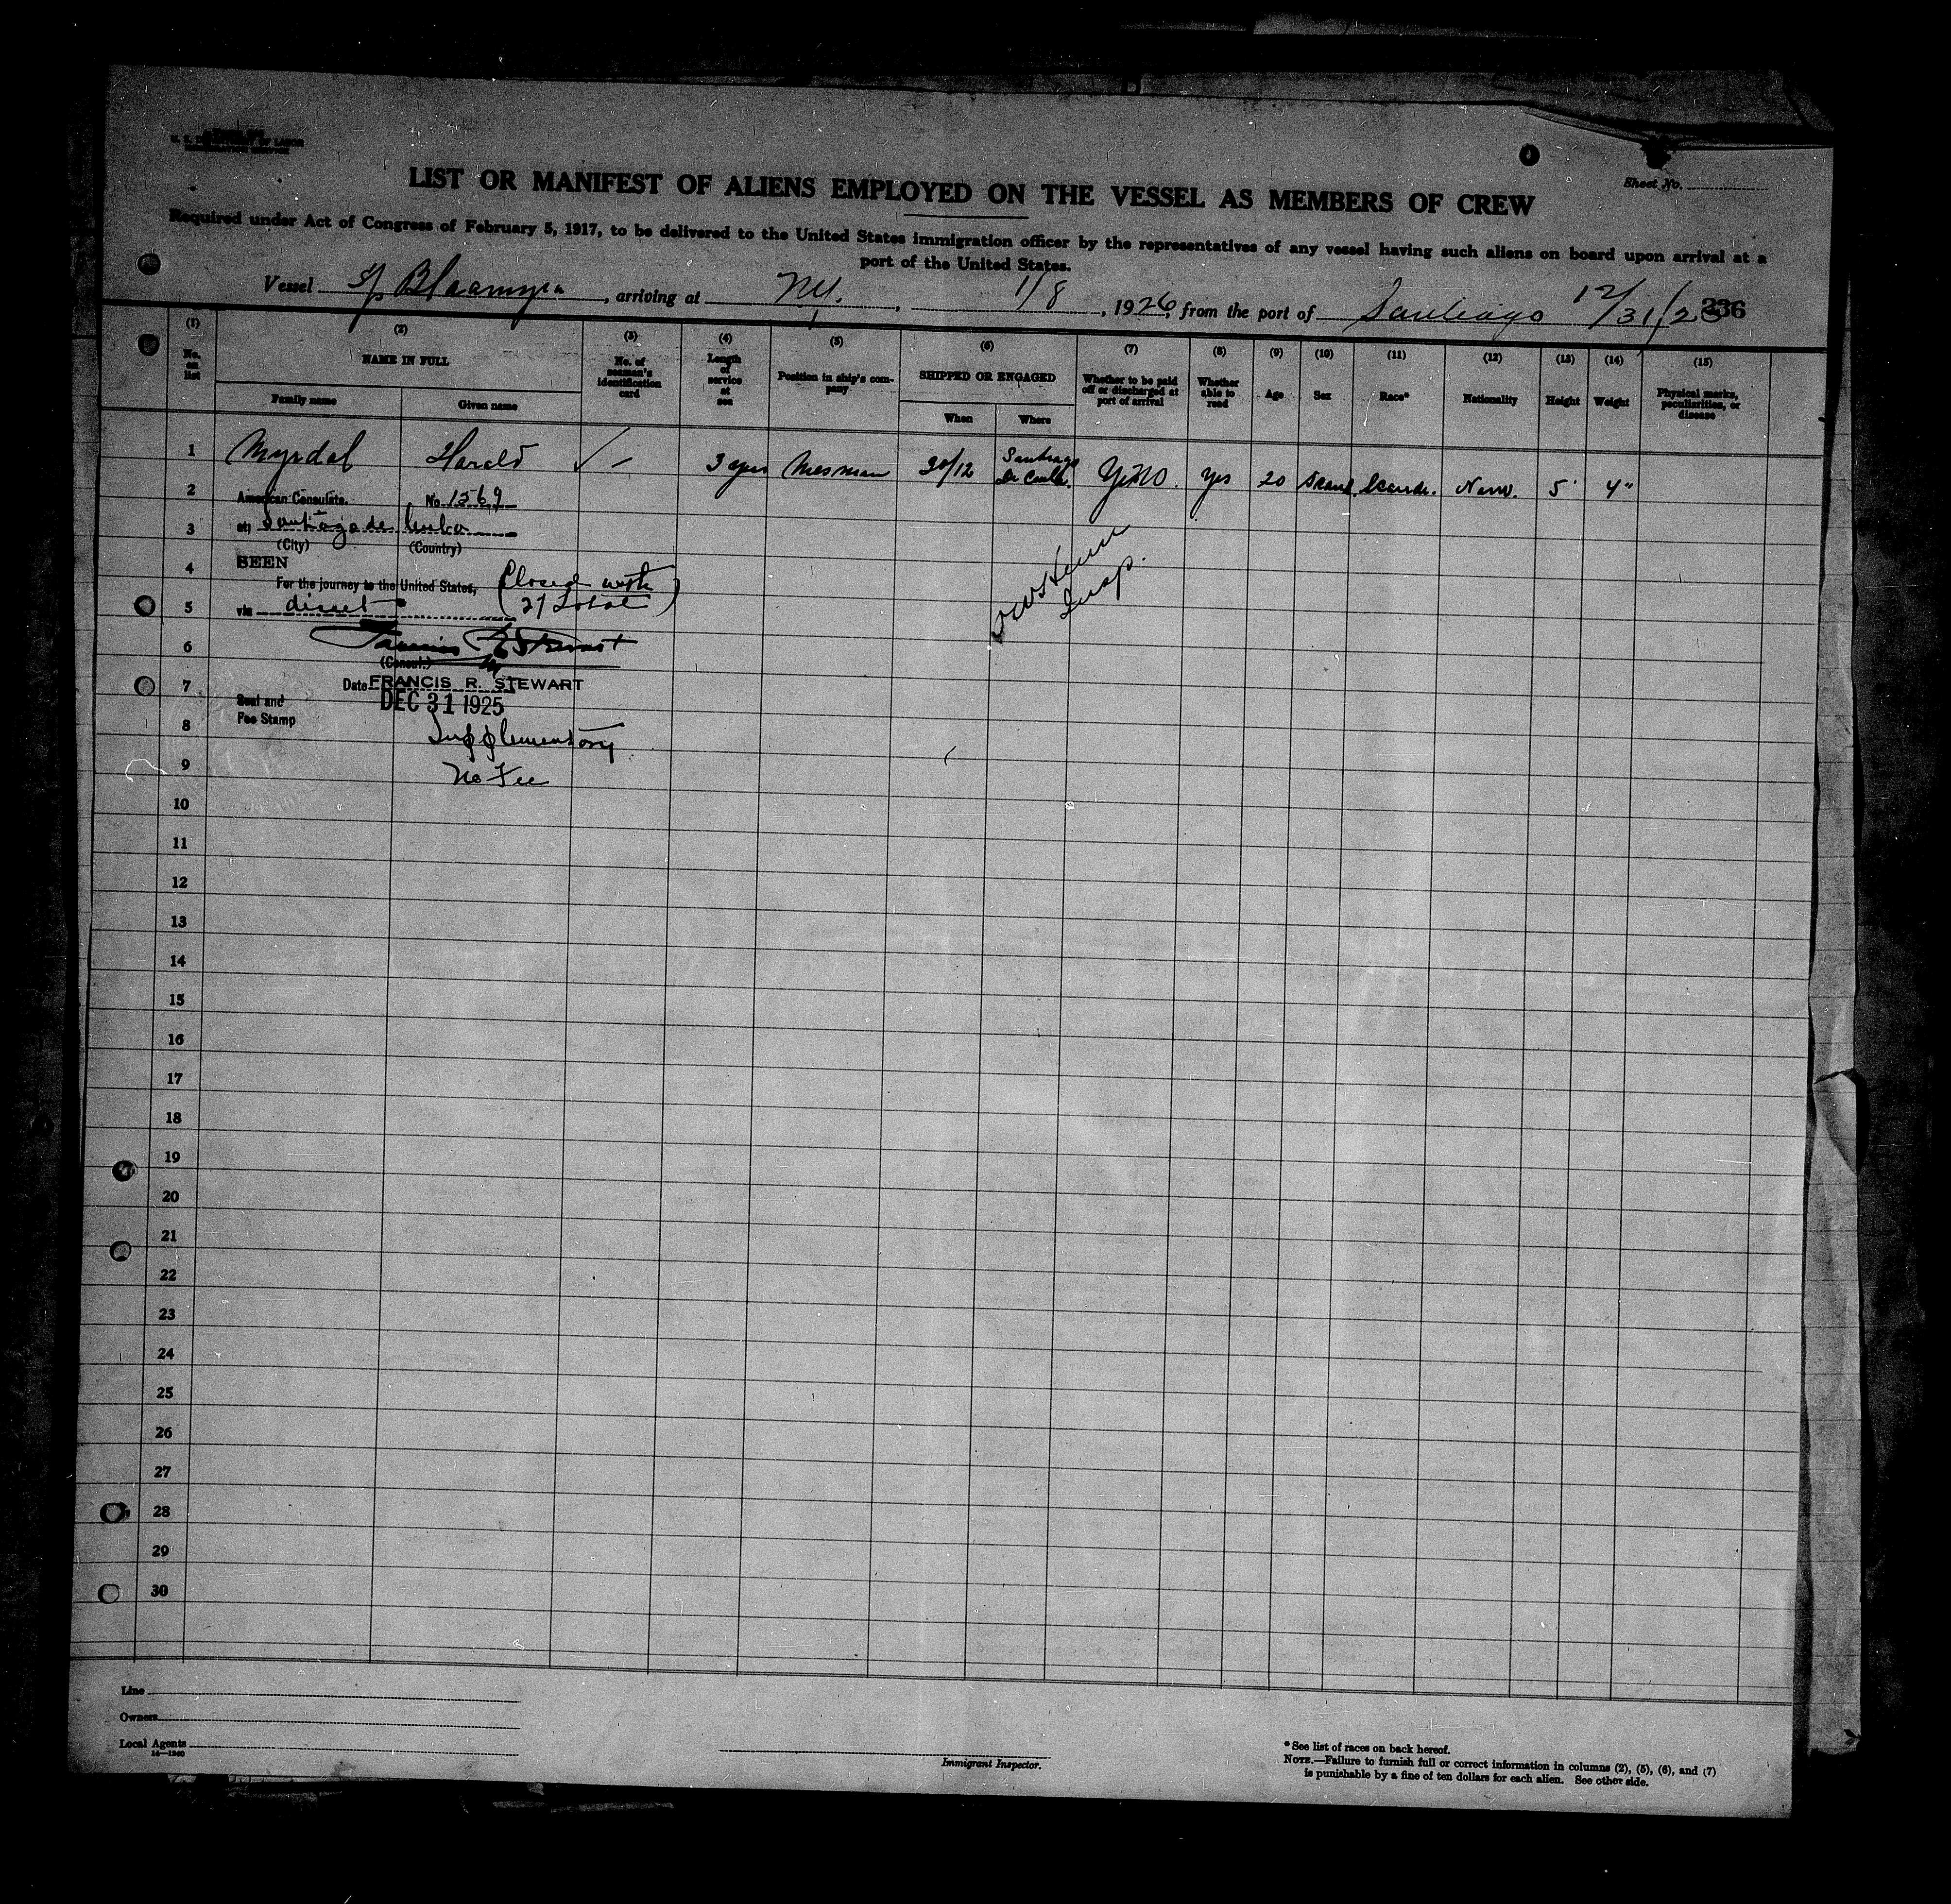 U. S. DEPARTMENT OF LABOR
IMMIGRATION SERVICE
Sheet No.
LIST OR MANIFEST OF ALIENS EMPLOYED ON THE VESSEL AS MEMBERS OF CREW
Required under Act of Congress of February 5, 1917, to be delivered to the United States immigration officer by the representatives of any vessel having such aliens on board upon arrival at a
port of the United States.
Vessel S/S, arriving at N.Y., 1/8, 1926, from the port of Santiago 12/31/25 236
(1) (2) (3) (4) (5) (6) (7) (8) (9) (10) (11) (12) (13) (14) (15)
No. on list
NAME IN FULL
Family name
Given name
No. of seaman's identification card
Length of service at sea
Position in ship's company
SHIPPED OR ENGAGED
When
Where
Whether to be paid off or discharged at port of arrival
Whether able to read
Age
Sex
Race*
Nationality
Height
Weight
Physical marks, peculiarities, or disease
1 Myrdal Harald ✓ – 3 years Mesman 30/12 Santiago De Cuba. No. yes 20 Scand. Norw. 5' 4"
2 American Consulate. No. 1569
3 at Santiago de Cuba
(City) (Country)
4 SEEN
For the journey to the United States, (Closed with
5 via direct 27 Total)
Insp.
6 Francis R Stewart
(Consul.)
7 Date FRANCIS R. STEWART
DEC 31 1925
Seal and
Fee Stamp
8 Supplementary
9 No Fee
10
11
12
13
14
15
16
17
18
19
20
21
22
23
24
25
26
27
28
29
30
Line
Owners
Local Agents
14—1240
Immigrant Inspector.
* See list of races on back hereof.
NOTE.—Failure to furnish full or correct information in columns (2), (5), (6), and (7)
is punishable by a fine of ten dollars for each alien. See other side.